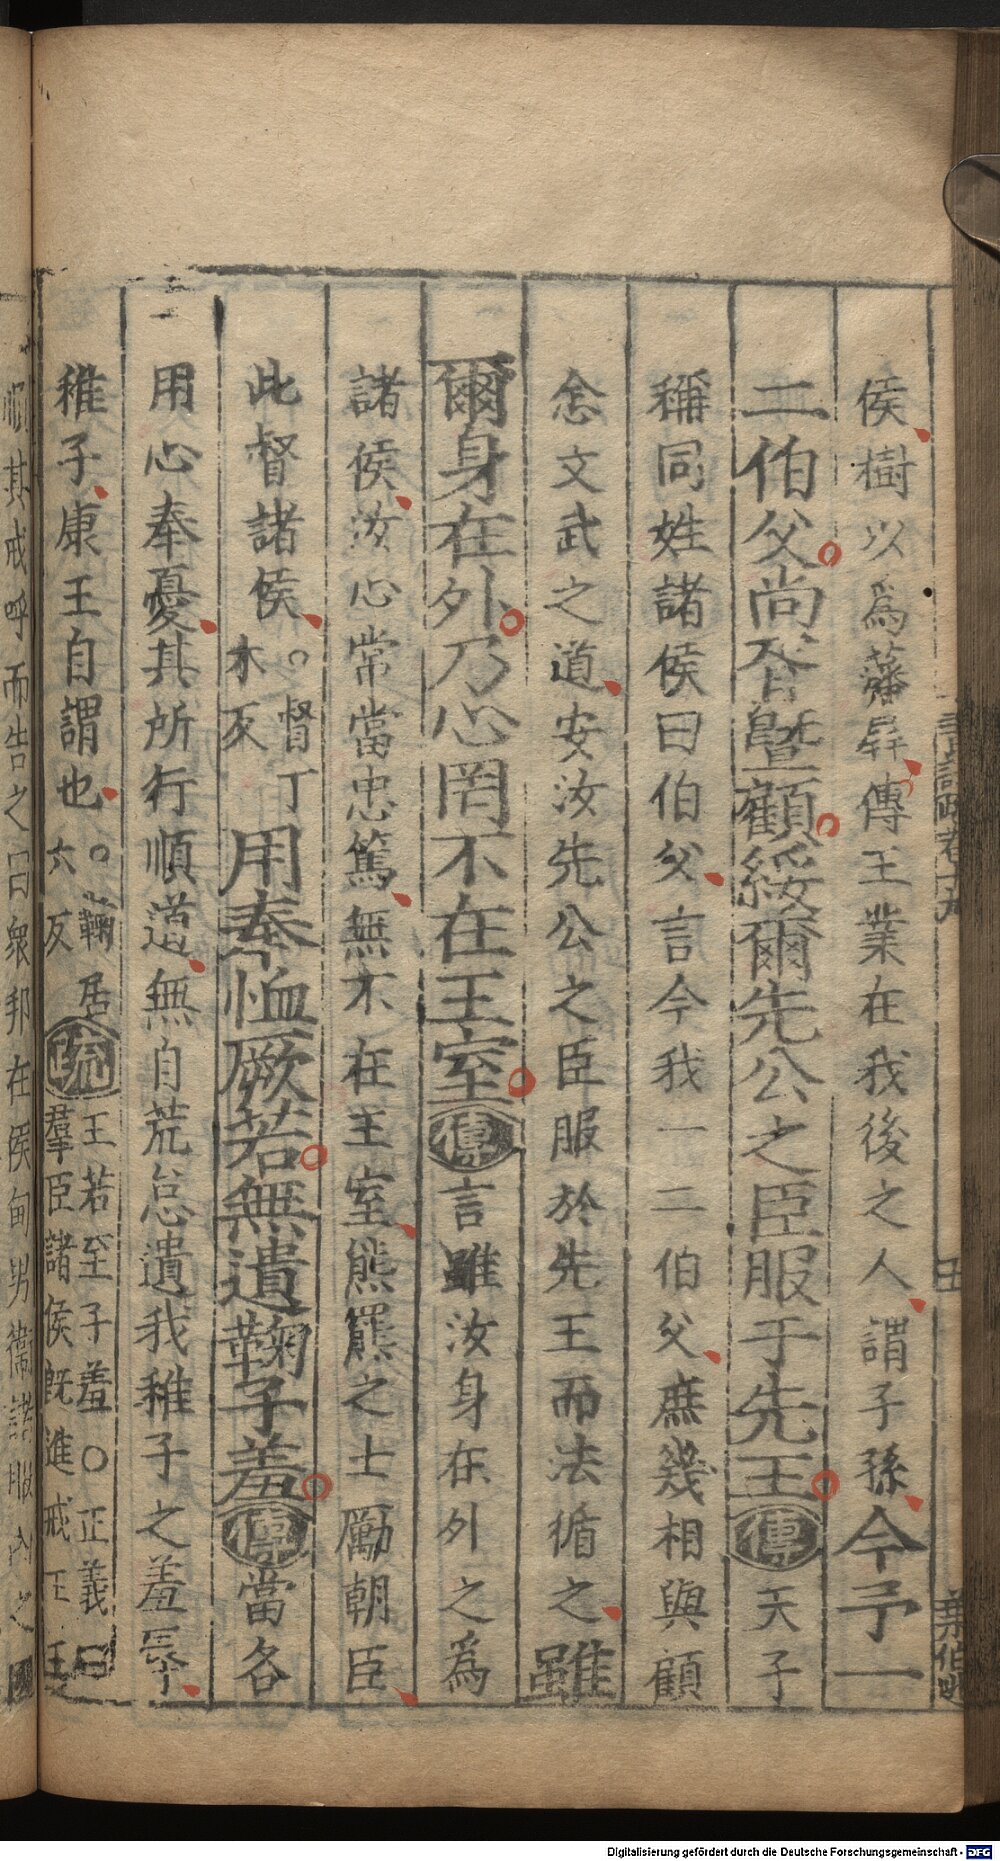 侯樹以爲藩屏傳王業在我後之人謂子孫今予一
二伯父尚胥曁顧綏爾先公之臣服于先王傳天子
稱同姓諸侯曰伯父言今我一二伯父庶幾相與顧
念文武之道安汝先公之臣服於先王而法循之雖
爾身在外乃心罔不在王室傳言雖汝身在外之爲
諸侯汝心常當忠篤無不在王室熊羆之士勵朝臣
此督諸侯○督丁木反用奉恤厥若無遺鞠子羞傳當各
用心奉憂其所行順道無自荒怠遺我稚子之羞辱
稚子康王自謂也○鞠居六反疏王若至子羞○正義曰羣臣諸侯旣進戒王王
順其戒呼而告之曰衆邦在侯甸男衞諸服內之國
書註疏卷十九
葉伯
Digitalisierung gefördert durch die Deutsche Forschungsgemeinschaft - DFG